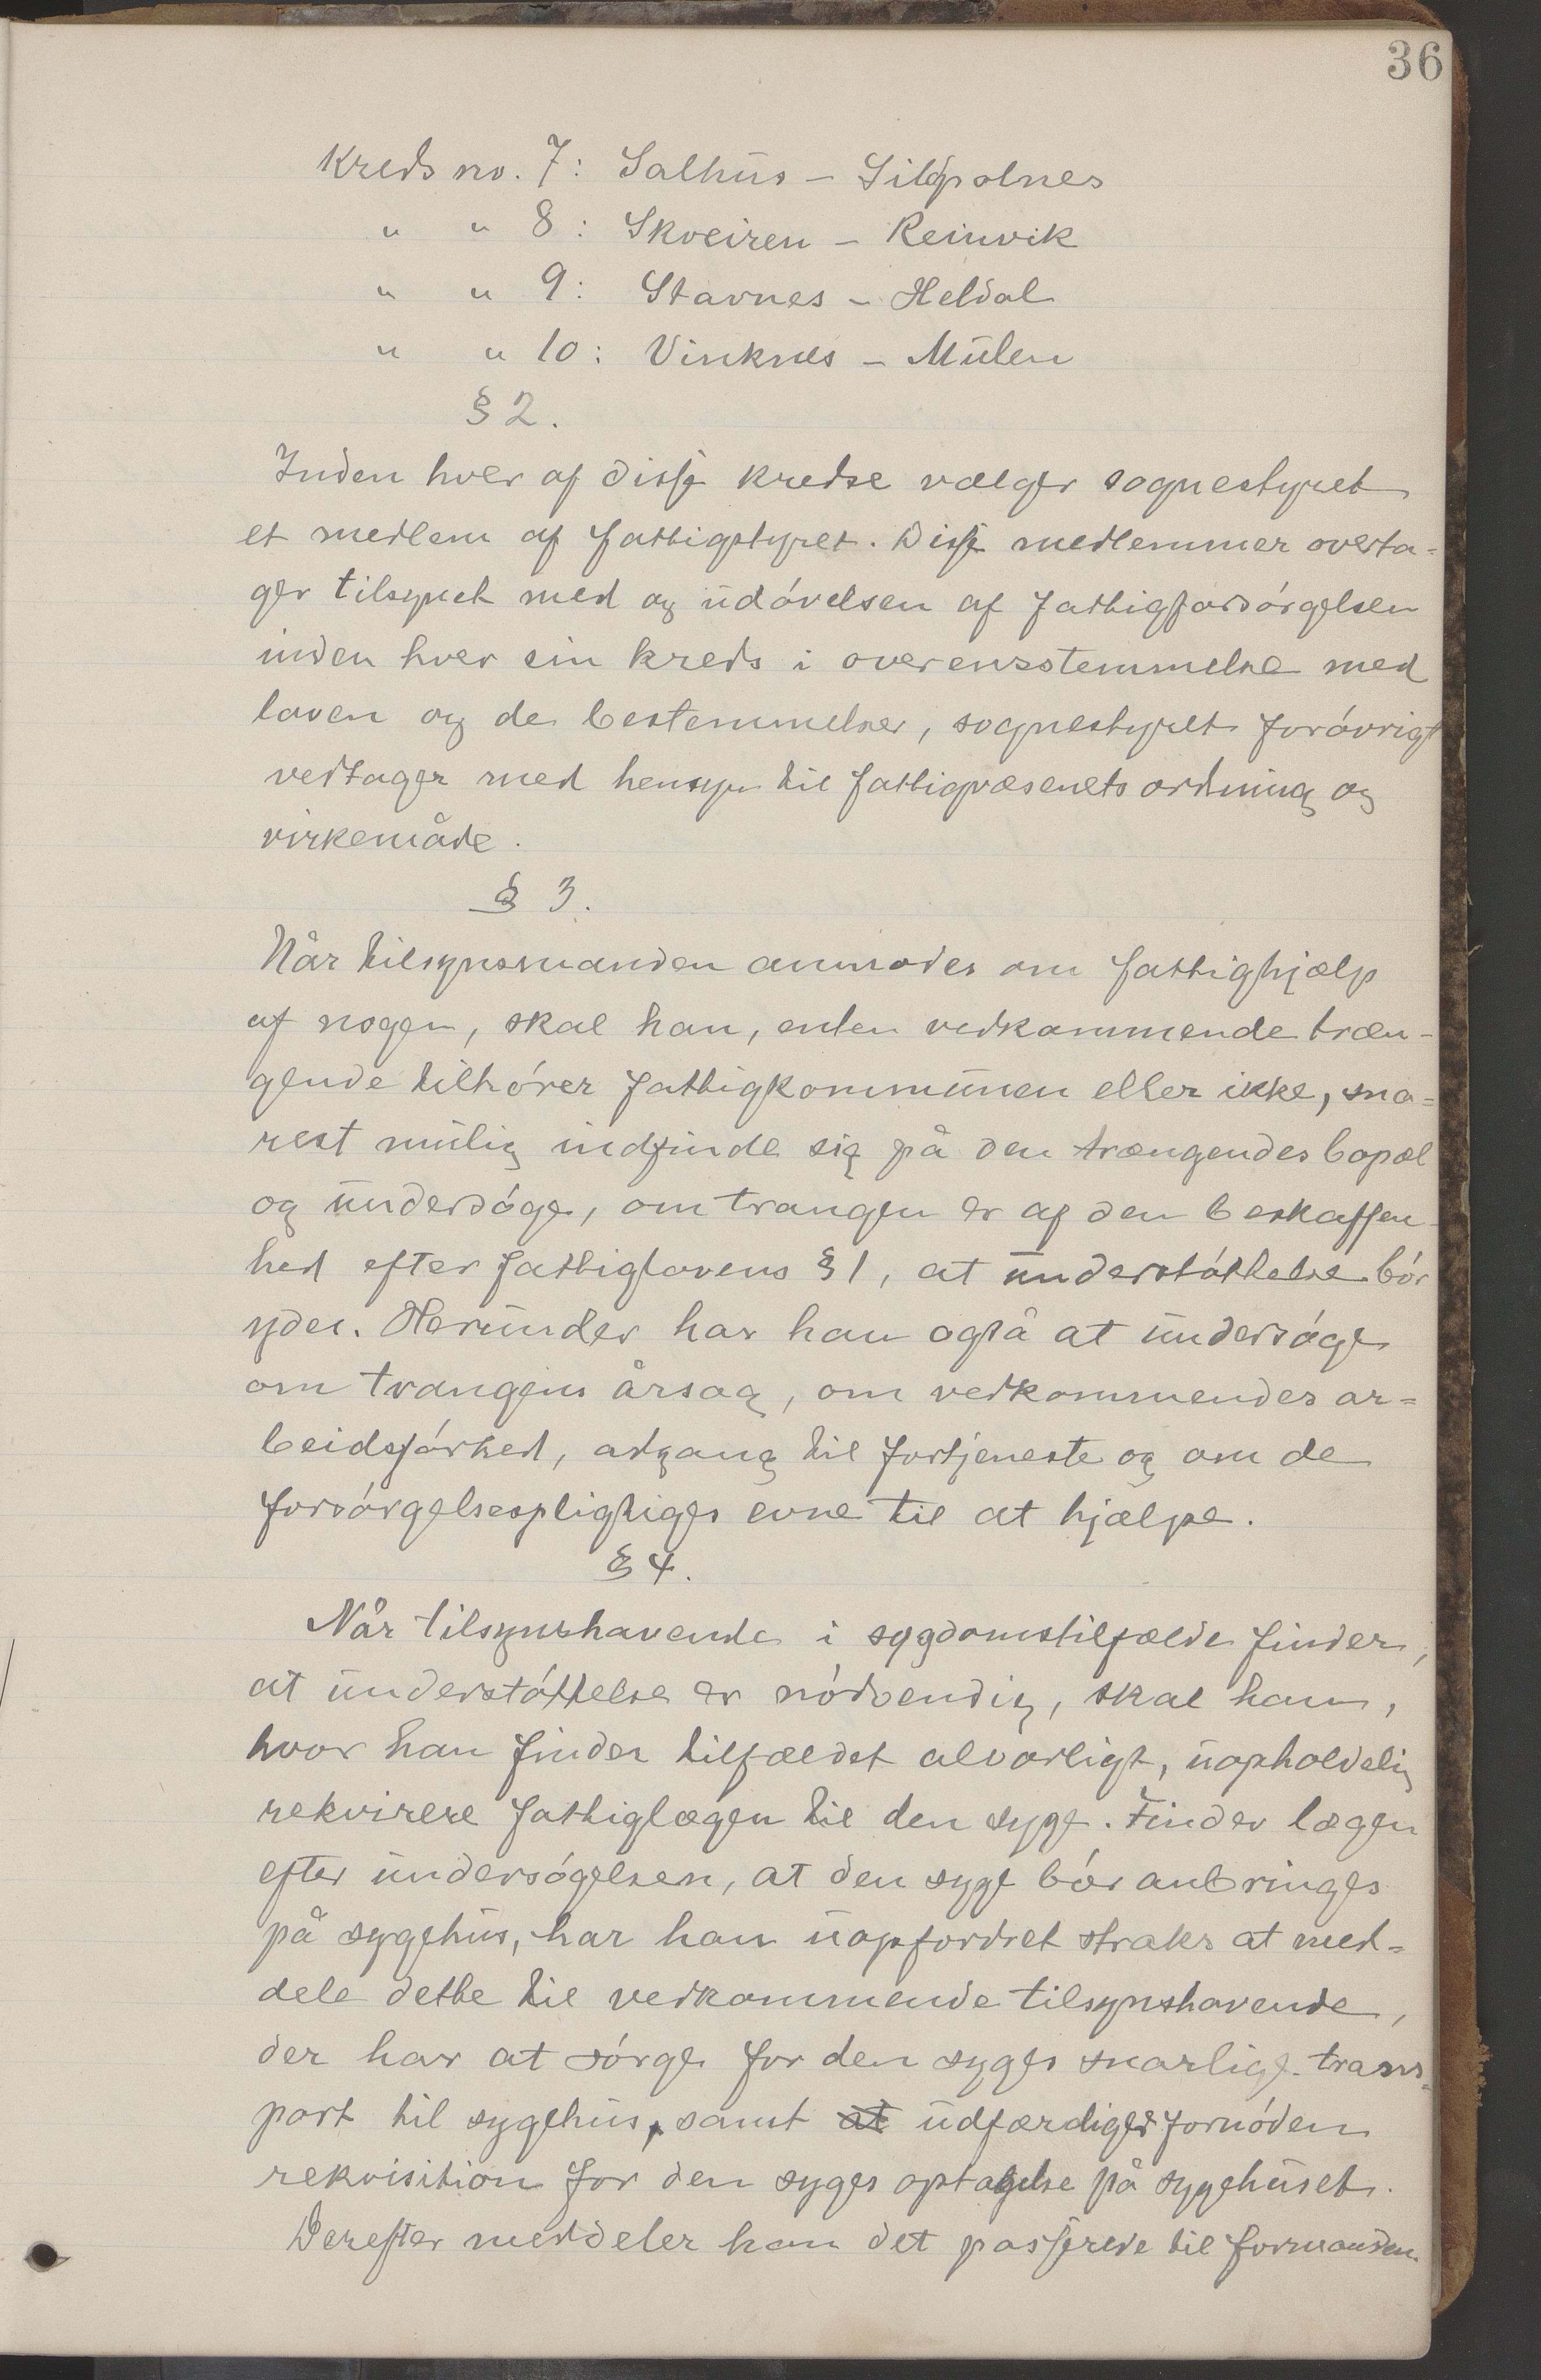 36
Kreds no. 7: Salhus – Sildpolnes
" " 8: Skveiren – Reinvik
" " 9: Stavnes – Heldal
" " 10: Vinknes – Mulen
§ 2.
Inden hver af disse kredse vælger sognestyret
et medlem af fattigstyret. Disse medlemmer overta=
ger tilsynet med og udóvelsen af fattigforsórgelsen
inden hver sin kreds i overensstemmelse med
loven og de bestemmelser, sognestyret foróvrigt
vedtager med hensyn til fattigvæsenets ordning og
virkemåde.
§ 3.
Når tilsynsmanden anmodes om fattighjælp
af nogen, skal han, enten vedkommende træn-
gende tilhórer fattigkommunen eller ikke, sna=
rest mulig indfinde sig på den trængendes bopæl
og undersóge, om trangen er af den beskaffen-
hed efter fattiglovens § 1, at understóttelse bór
ydes. Herunder har han også at undersóge
om trangens årsag, om vedkommendes ar=
beidsfórhed, adgang til fortjeneste og om de
forsórgelsespligtiges evne til at hjælpe.
§ 4.
Når tilsynshavende i sygdomstilfælde finder,
at understóttelse er nódvendig, skal han,
hvor han finder tilfældet alvorligt, uopholdelig
rekvirere fattiglægen til den syge. Finder lægen
efter undersógelsen, at den syge bór anbringes
på sygehus, har han uopfordret straks at med=
dele dette til vedkommende tilsynshavende,
der har at sórge for den syges snarlige trans=
port til sygehus, samt at udfærdiger fornóden
rekvisition for den syges optagelse på sygehuset.
Derefter meddeler han det passerede til formanden